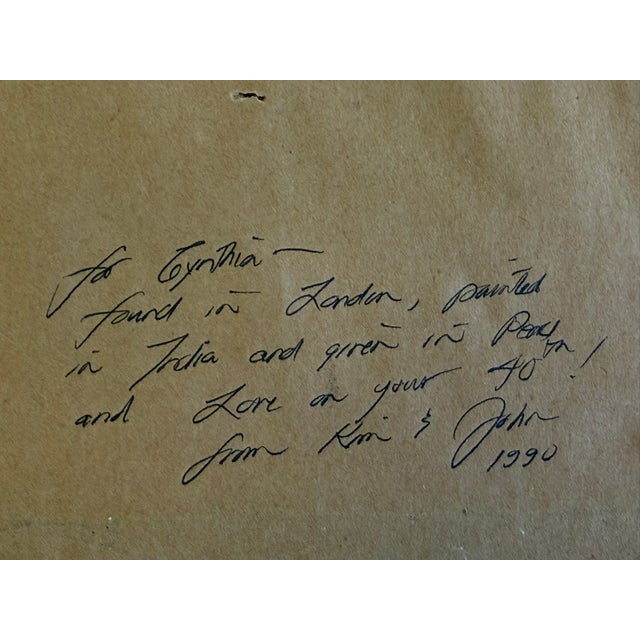 for Cynthia —
found in London, painted
in India and given in Peace
and Love on your 40th!
from Kim & John
1990